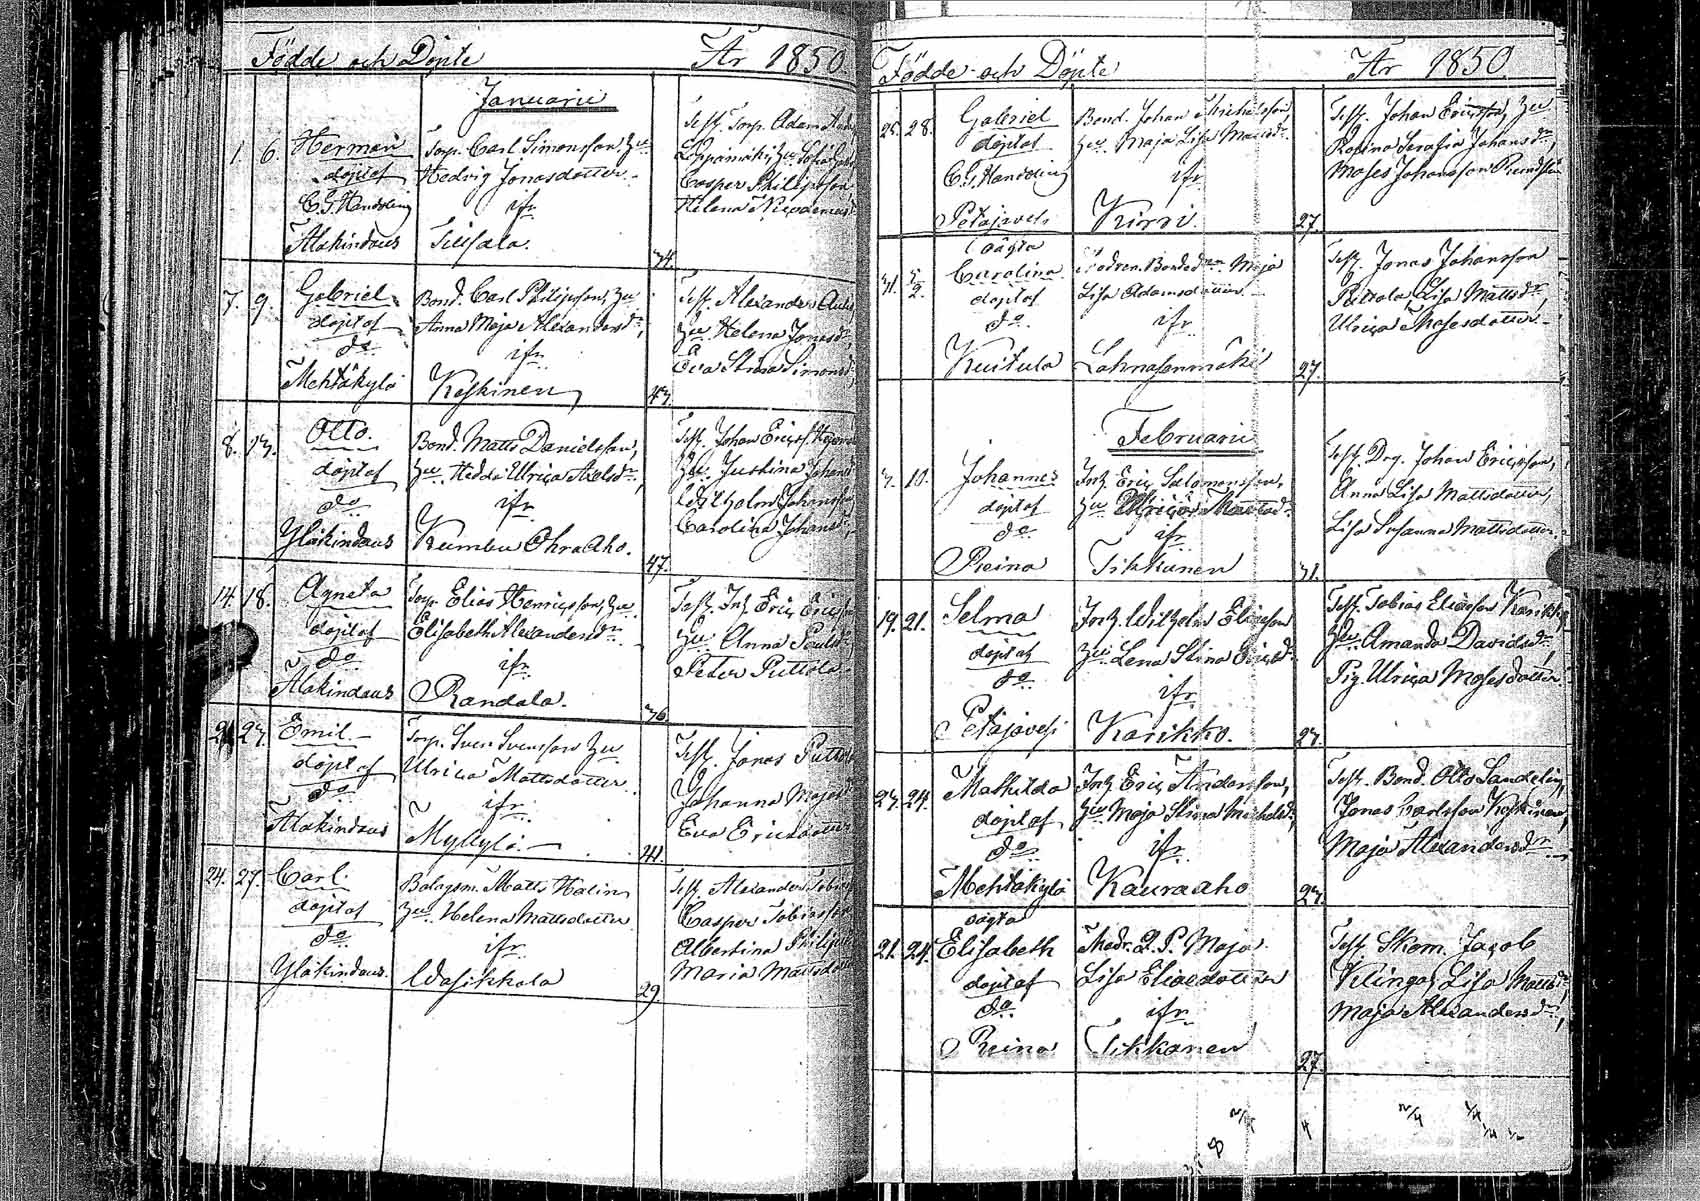 Födde och Döpte År 1850.
Januarii
1. 6. Herman
döpt af
C.G. Handding
Alakindaus
Torp. Carl Simonsson, Hu
Hedvig Jonasdotter
ifr
Sillfala.
34.
Test. Torp. Adam
Hu Sofia
Casper Philipsson
Helena
7. 9. Gabriel
döpt af
do
Mehtäkylä
Bond. Carl Philipsson, Hu
Anna Maja Alexandersdr,
ifr
Keskinen
43.
Test. Alexander
Hu Helena Jonasdr
Eva Stina Simonsd
8. 13. Otto.
döpt af
do
Yläkindaus
Bond. Matts Danielsson,
Hu. Hedda Ulrica Axelsdr,
ifr
Kumbu Ohraaho.
47.
Test. Johan Ericss.
Hu. Justina Johansd
Wilhelm Johansson
Carolina Johansdr,
14. 18. Agneta
döpt af
do
Alakindaus
Torp. Elias Henricsson, Hu
Elisabeth Alexandersdr
ifr
Randala.
36
Test. Inh. Eric Ericsson
Hu Anna Paulsdr
Peter Puttola
23. Emil.
döpt af
do
Alakindaus
Torp. Sven Svensson Hu
Ulrica Mattsdotter
ifr
Myllylä.
41.
Test. Jonas Puttola
Johanna
Eva Ericsdotter
24. 27. Carl.
döpt af
do
Yläkindaus.
Bolagsm. Matts Halin
Hu. Helena Mattsdotter
ifr
Wasikkala
29
Test. Alexander Tobiass
Casper Tobiasson
Albertina Philipsd
Maria Mattsdotter
Födde och Döpte År 1850
25. 28. Gabriel
döpt af
C.G. Handding
Petäjävesi
Bond. Johan Michelsson,
Hu Maja Lisa Mattsdr.
ifr
Kirri.
27.
Test. Johan Ericsson, Hu
Rosina Serafia Johansdr,
Moses Johansson
31. 3/2. oägta
Carolina
döpt af
do
Kuitula
Bonded. Maja
Lisa Adamsdotter
ifr
Lahnasenmäki
27.
Test. Jonas Johansson
Puttola, Lisa Mattsdr
Ulrica Mosesdotter
Februarii
3. 10. Johannes
döpt af
do
Reina
Inh. Eric Salomonsson,
Hu Ulrica
ifr
Tikkanen
31.
Test. Drg. Johan Ericsson,
Anna Lisa Mattsdotter,
Lisa Susanna Mattsdotter.
19. 21. Selma
döpt af
do
Petäjävesi
Inh. Wilhelm Eliasson
Hu Lena Stina Ericsdr
ifr
Karikko.
23.
Test. Tobias Eliasson Karikko
Hu Amanda Davidsdr,
Pig. Ulrica Mosesdotter.
23. 24. Mathilda
döpt af
do
Mehtäkylä
Inh. Eric Andersson,
Hu Maja Stina Michelsdr,
ifr
Kauraaho
23.
Test. Bond. Otto Sandelin,
Jonas Carlsson Keskinen,
Maja Alexandersdr
21. 24. oägta
Elisabeth
döpt af
do
Reina
Thedr. Q. P. Maja
Lisa Eliaedotter
ifr
Tikkanen
27.
Test. Skom. Jacob
Klinga, Lisa Mattsdr,
Maja Alexandersdr,